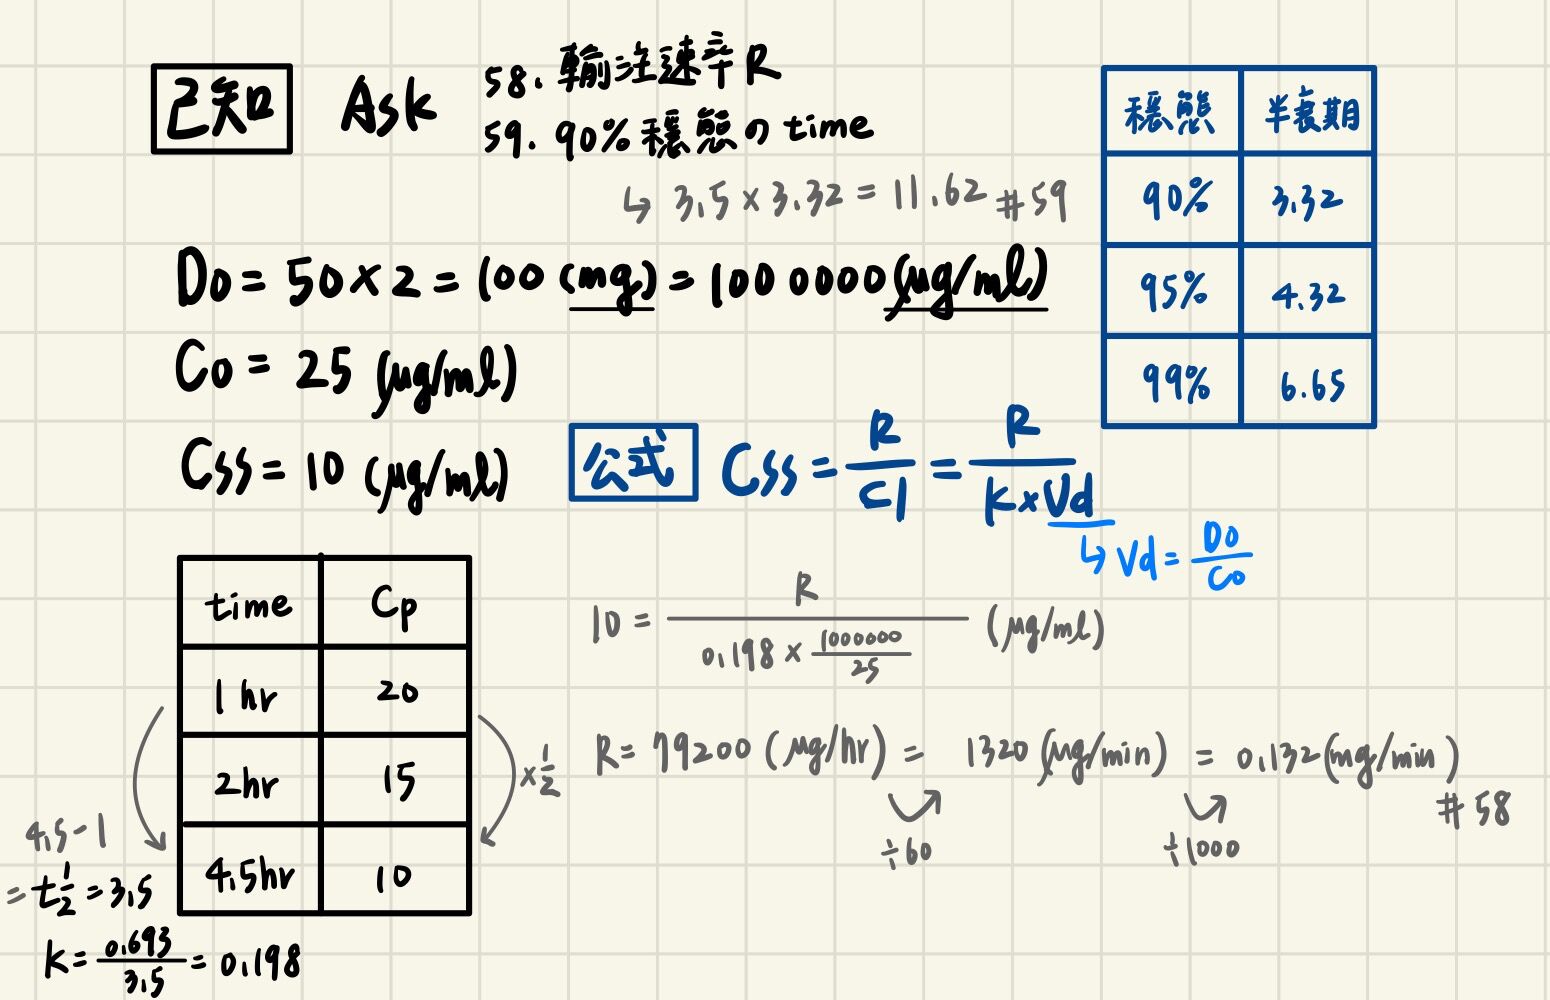 已知 Ask 58. 輸注速率 R
59. 90% 穩態の time
↳ 3.5 × 3.32 = 11.62 #59
穩態 半衰期
90% 3.32
95% 4.32
99% 6.65
D0 = 50 × 2 = 100 (mg) = 100 0000 (μg/ml)
C0 = 25 (μg/ml)
Css = 10 (μg/ml)
公式 Css = R/Cl = R/(K×Vd)
↳ Vd = D0/C0
time Cp
1 hr 20
2hr 15
4.5hr 10
×1/2
4.5-1
= t1/2 = 3.5
K = 0.693/3.5 = 0.198
10 = R/(0.198 × 1000000/25) (μg/ml)
R = 79200 (μg/hr) = 1320 (μg/min) = 0.132 (mg/min)
÷60 ÷1000 #58